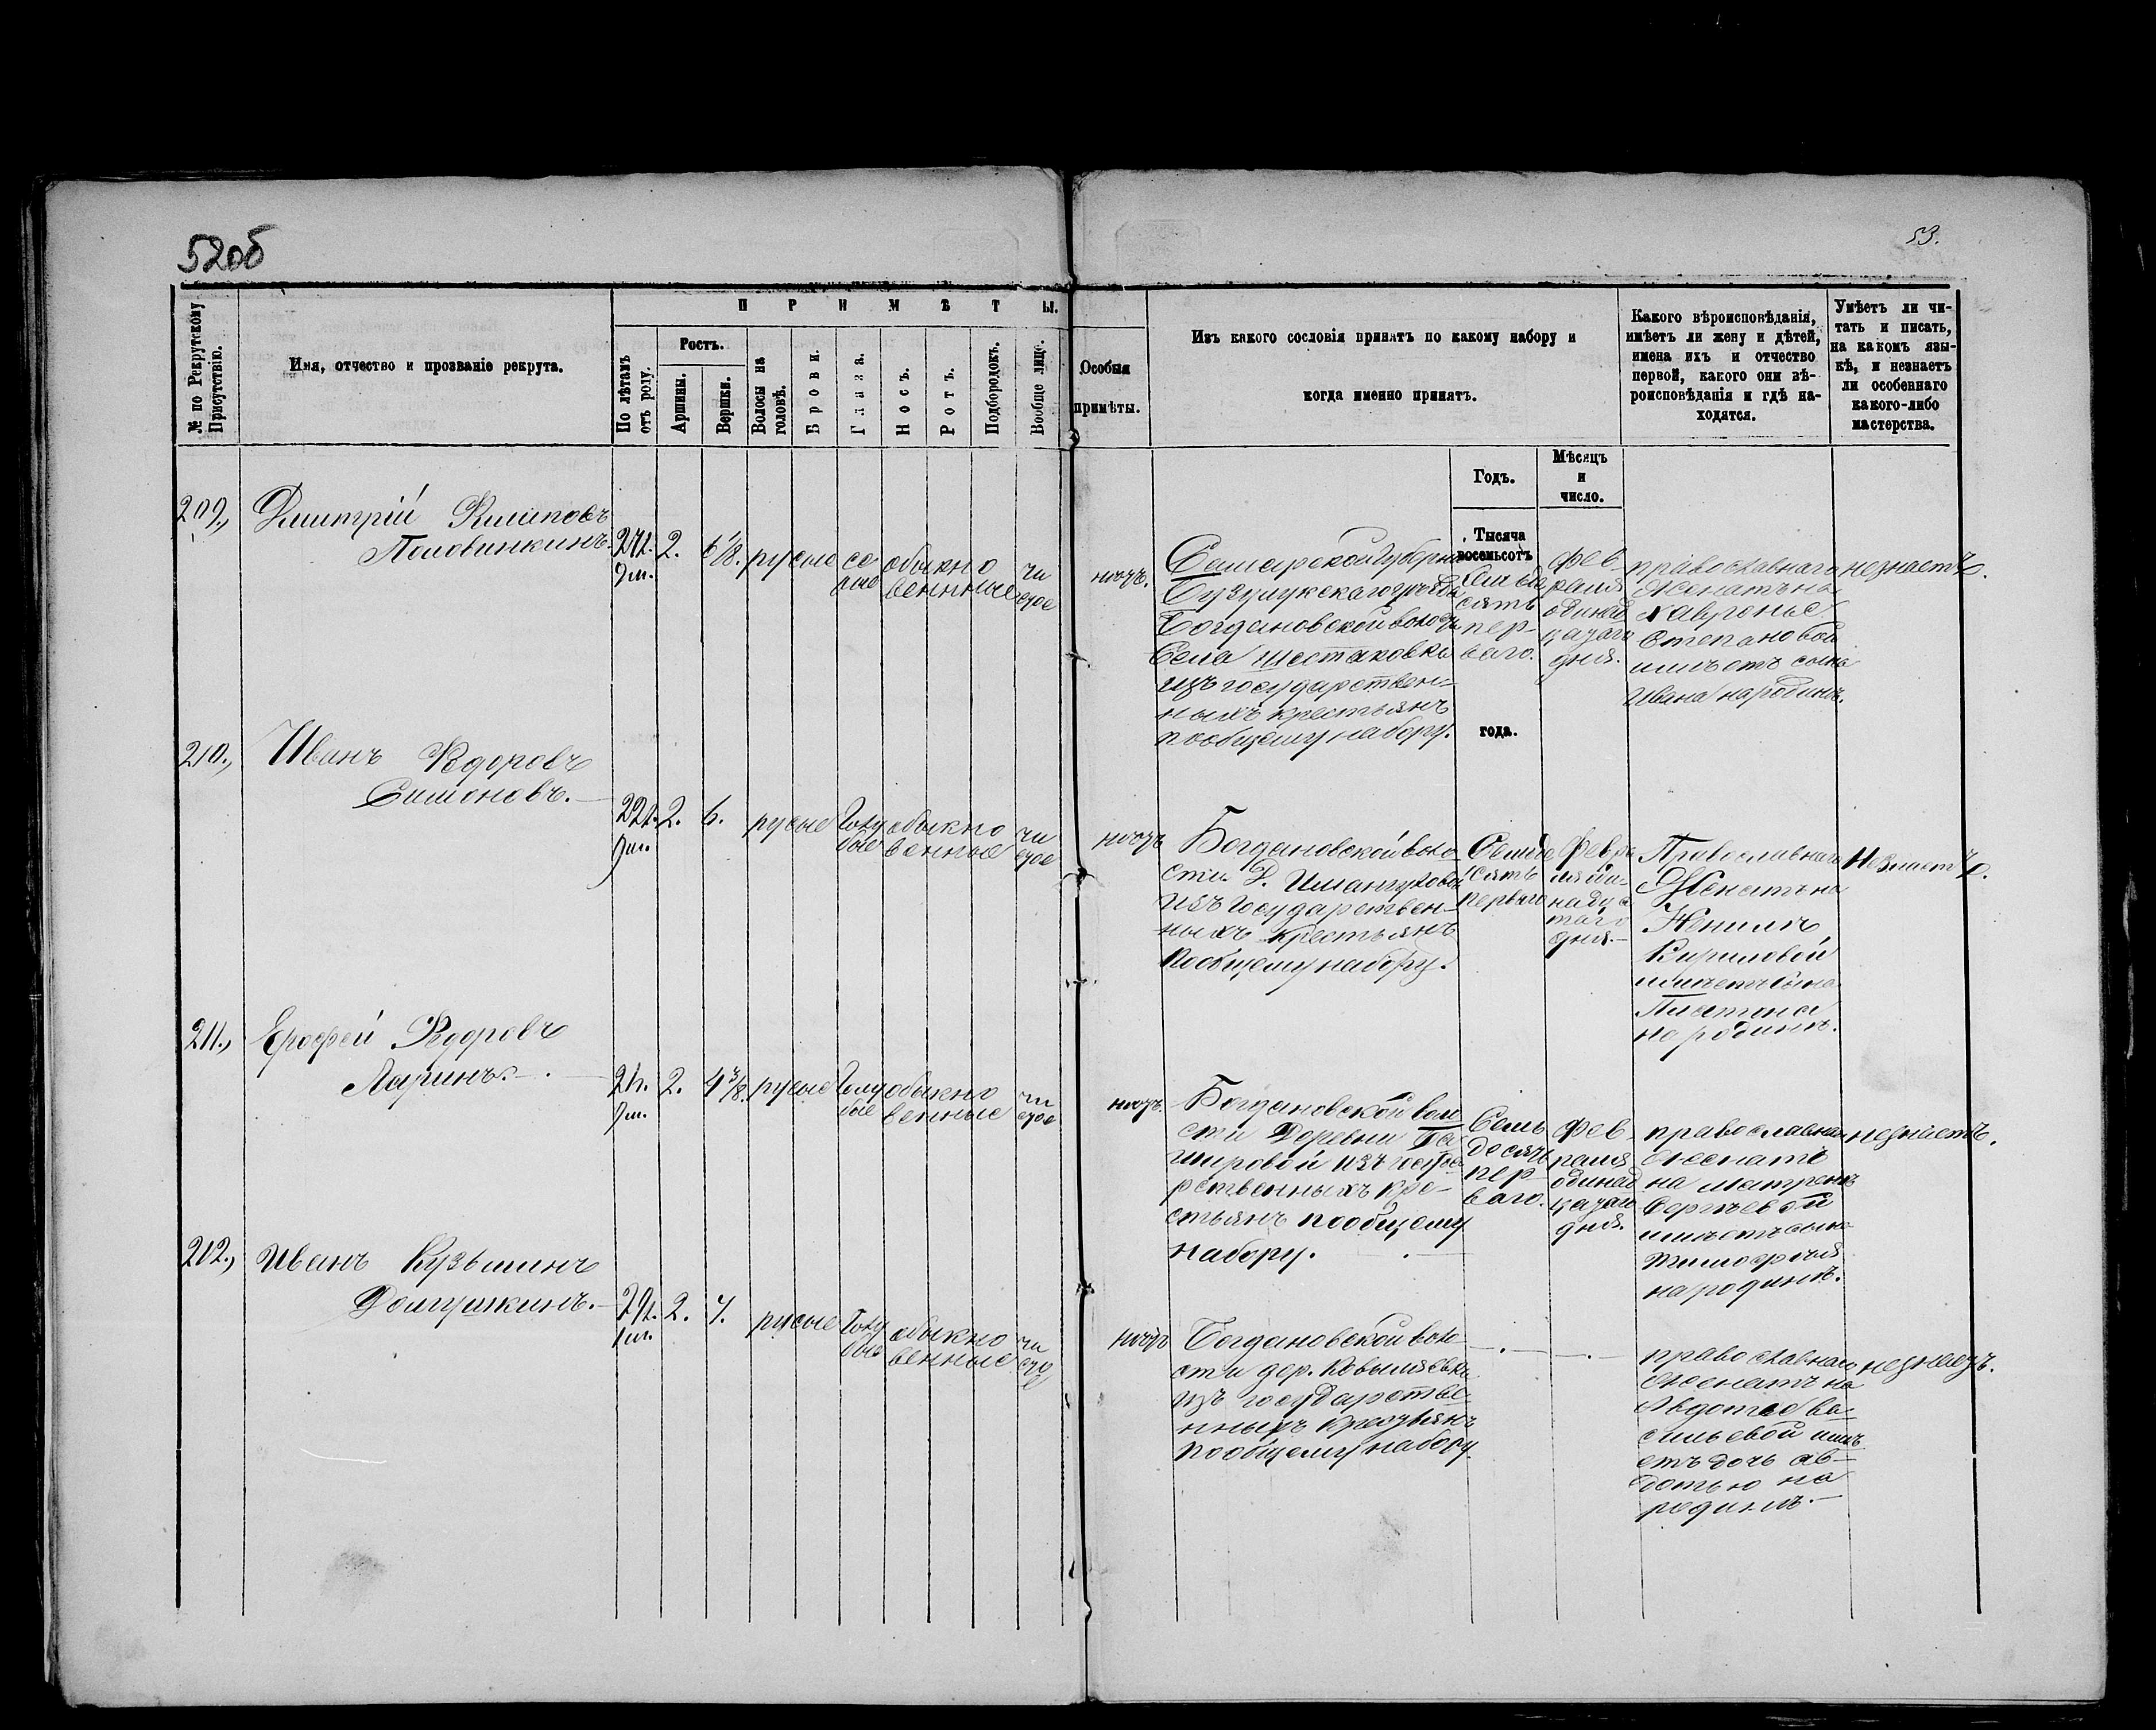 52об
53.
№ по Рекрутскому Присутствію.
Имя, отчество и прозваніе рекрута.
ПРИМѢТЫ.
По лѣтамъ отъ роду.
Ростъ.
Аршины.
Вершки.
Волосы на головѣ.
Брови.
Глаза.
Носъ.
Ротъ.
Подбородокъ.
Вообще лице.
Особыя
примѣты.
Изъ какого сословія принятъ по какому набору и
когда именно принятъ.
Какого вѣроисповѣданія,
имѣетъ ли жену и дѣтей,
имена ихъ и отчество
первой, какого они вѣ-
роисповѣданія и гдѣ на-
ходятся.
Умѣетъ ли чи-
тать и писать,
на какомъ язы-
кѣ, и незнаетъ
ли особеннаго
какого-либо
мастерства.
Годъ.
Мѣсяцъ
и
число.
Тысяча
восемьсотъ
года.
209.,
Дмитрій Филиповъ
Половинкинъ.
2.
6 1/8.
русые
се
рые
обыкно
венные
чи
стое
нѣтъ.
Самарской Губерніи
Бузулукскаго уѣзда
Богдановской волости
Села Шестаковки
изъ государствен-
ныхъ крестьянъ
по общему набору.
Семьде
сятъ
пер-
ваго.
Фев-
раля
одинад
цатаго
дня.
православнаго
Женатъ на
Хавроньѣ
Степановой
имѣетъ сына
Ивана на родинѣ.
незнаетъ.
210.,
Иванъ Ѳедоровъ
Симоновъ.
22л.
9м.
2.
6.
русые
Голу
бые
обыкно
венные
чи
стое
нѣтъ
Богдановской воло
сти Д.
изъ Государствен-
ныхъ крестьянъ
по общему набору.
Семьде
сятъ
перваго
Февра
ля оди-
надца
таго
дня.
Православнаго
Женатъ на
Ненилѣ
Кириловой
имѣетъ сына
на родинѣ.
Незнаетъ.
211.,
Ерофей Ѳедоровъ
Ларинъ.
2.
4 3/8.
русые
Голу
бые
обыкно
венные
чи
стое
нѣтъ.
Богдановской воло
сти Деревни Ба
шировой изъ госуда
рственныхъ кре-
стьянъ по общему
набору.
Семь
десятъ
пер-
ваго.
Фев-
раля
одинад
цатаго
дня.
православнаго
Женатъ
на Матренѣ
Сергѣевой
имѣетъ сына
Тимофѣя
на родинѣ.
незнаетъ.
212.,
Иванъ Кузьминъ
Долгушкинъ.
2.
4.
русые
Голу
бые
обыкно
венные
чи
стое
нѣтъ
Богдановской воло
сти дер.
изъ государстве
нныхъ крестьянъ
по общему набору.
православнаго
Женатъ на
Авдотье Ва
сильевой имѣ
етъ дочь Ав-
дотью на
родинѣ.
незнаетъ.